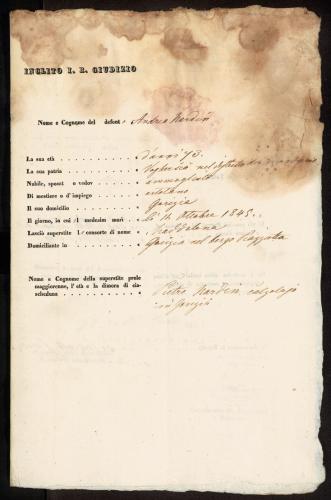 INCLITO I. R. GIUDIZIO
Nome e Cognome del defunto Andrea Nardin
La sua età d'anni 73.
La sua patria nel distretto
Nubile, sposat o vedov ammogliato
Di mestiere o d'impiego
Il suo domicilio Gorizia
Il giorno, in cui il medesimo morì li 14 Ottobre 1845.
Lasciò superstite consorte di nome Maddalena
Domiciliante in Gorizia nel borgo Piazzutta
Nome e Cognome della superstite prole
maggiorenne, l'età e la dimora di cia-
scheduno Pietro Nardin, calzolajo
in Gorizia